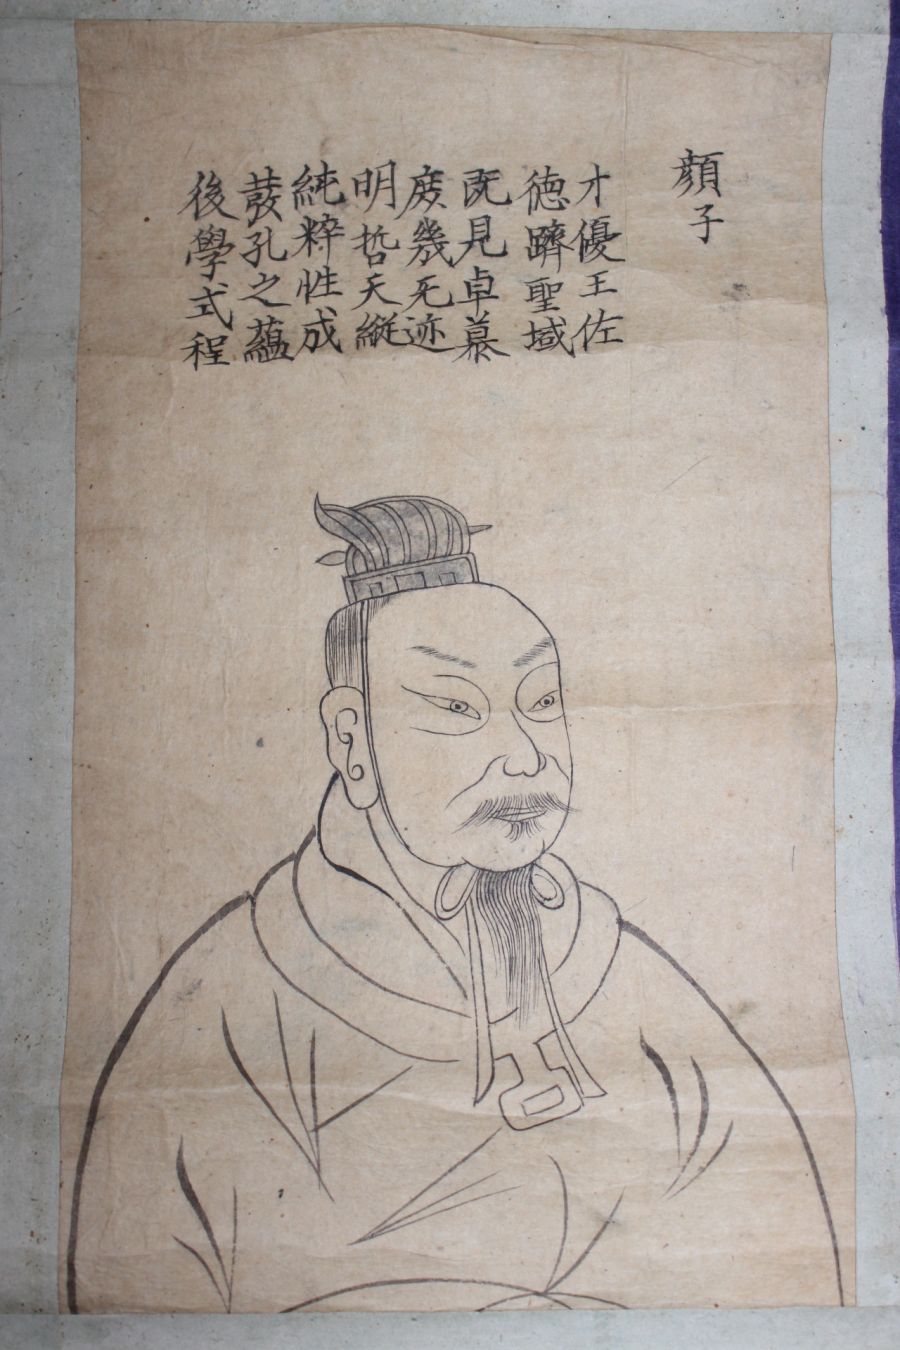 顔子
才優王佐
德躋聖域
既見卓慕
庶幾无迹
明哲天縱
純粹性成
發孔之蘊
後學式程